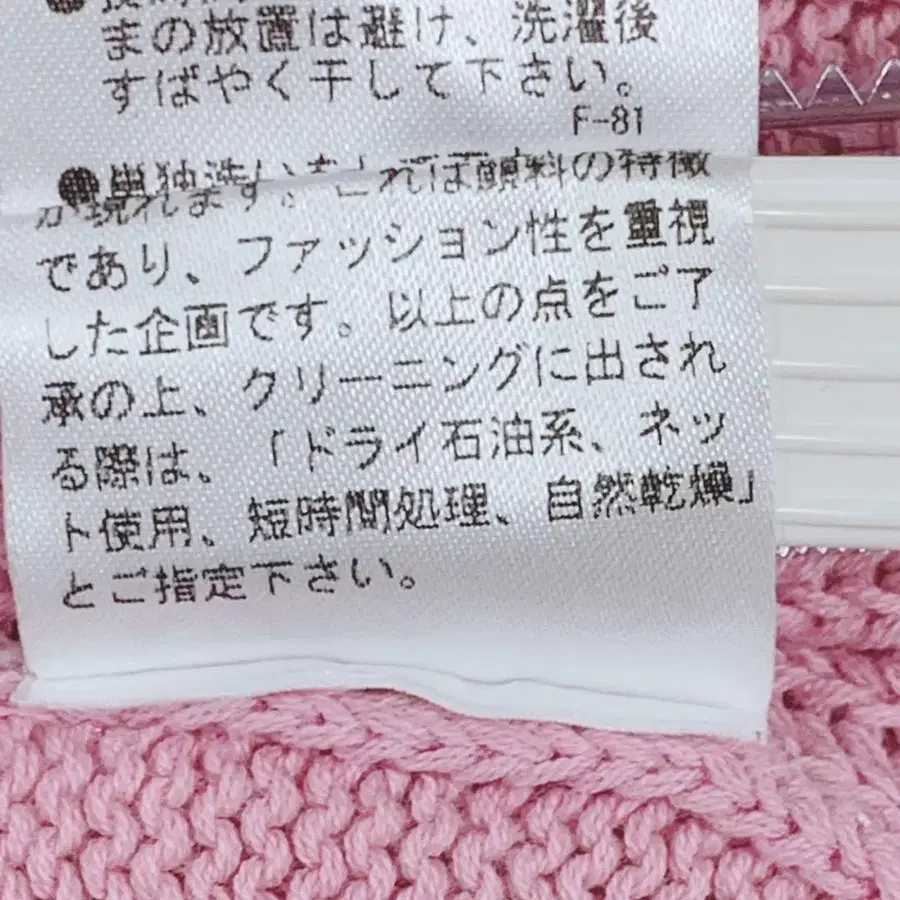 まの放置は避け、洗濯後
すばやく干して下さい。
F-81
これは顔料の特徴
が現れます
であり、ファッション性を重視
した企画です。以上の点をご了
承の上、クリーニングに出され
る際は、「ドライ石油系、ネッ
ト使用、短時間処理、自然乾燥」
とご指定下さい。